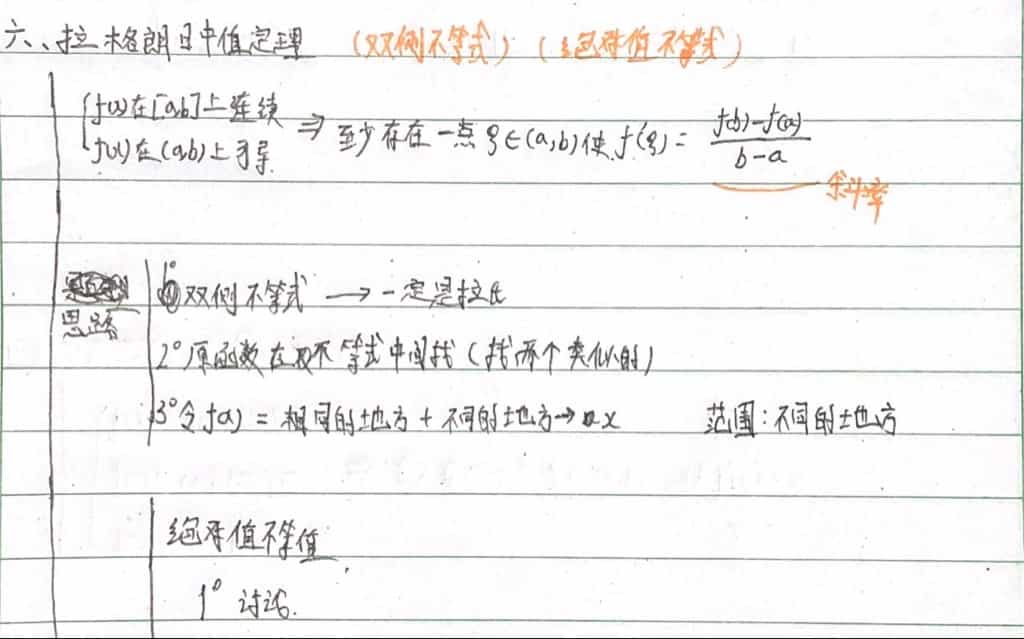 六、拉格朗日中值定理 (双侧不等式) (绝对值不等式)
f(x)在[a,b]上连续
f(x)在(a,b)上可导
⇒ 至少存在一点ξ∈(a,b)使f'(ξ)= f(b)-f(a) / b-a
求斜率
思路
1° 双侧不等式 → 一定是拉氏
2° 原函数在双不等式中间找 (找两个类似的)
3° 令f(x) = 相同的地方 + 不同的地方→x 范围:不同的地方
绝对值不等值
1° 讨论.